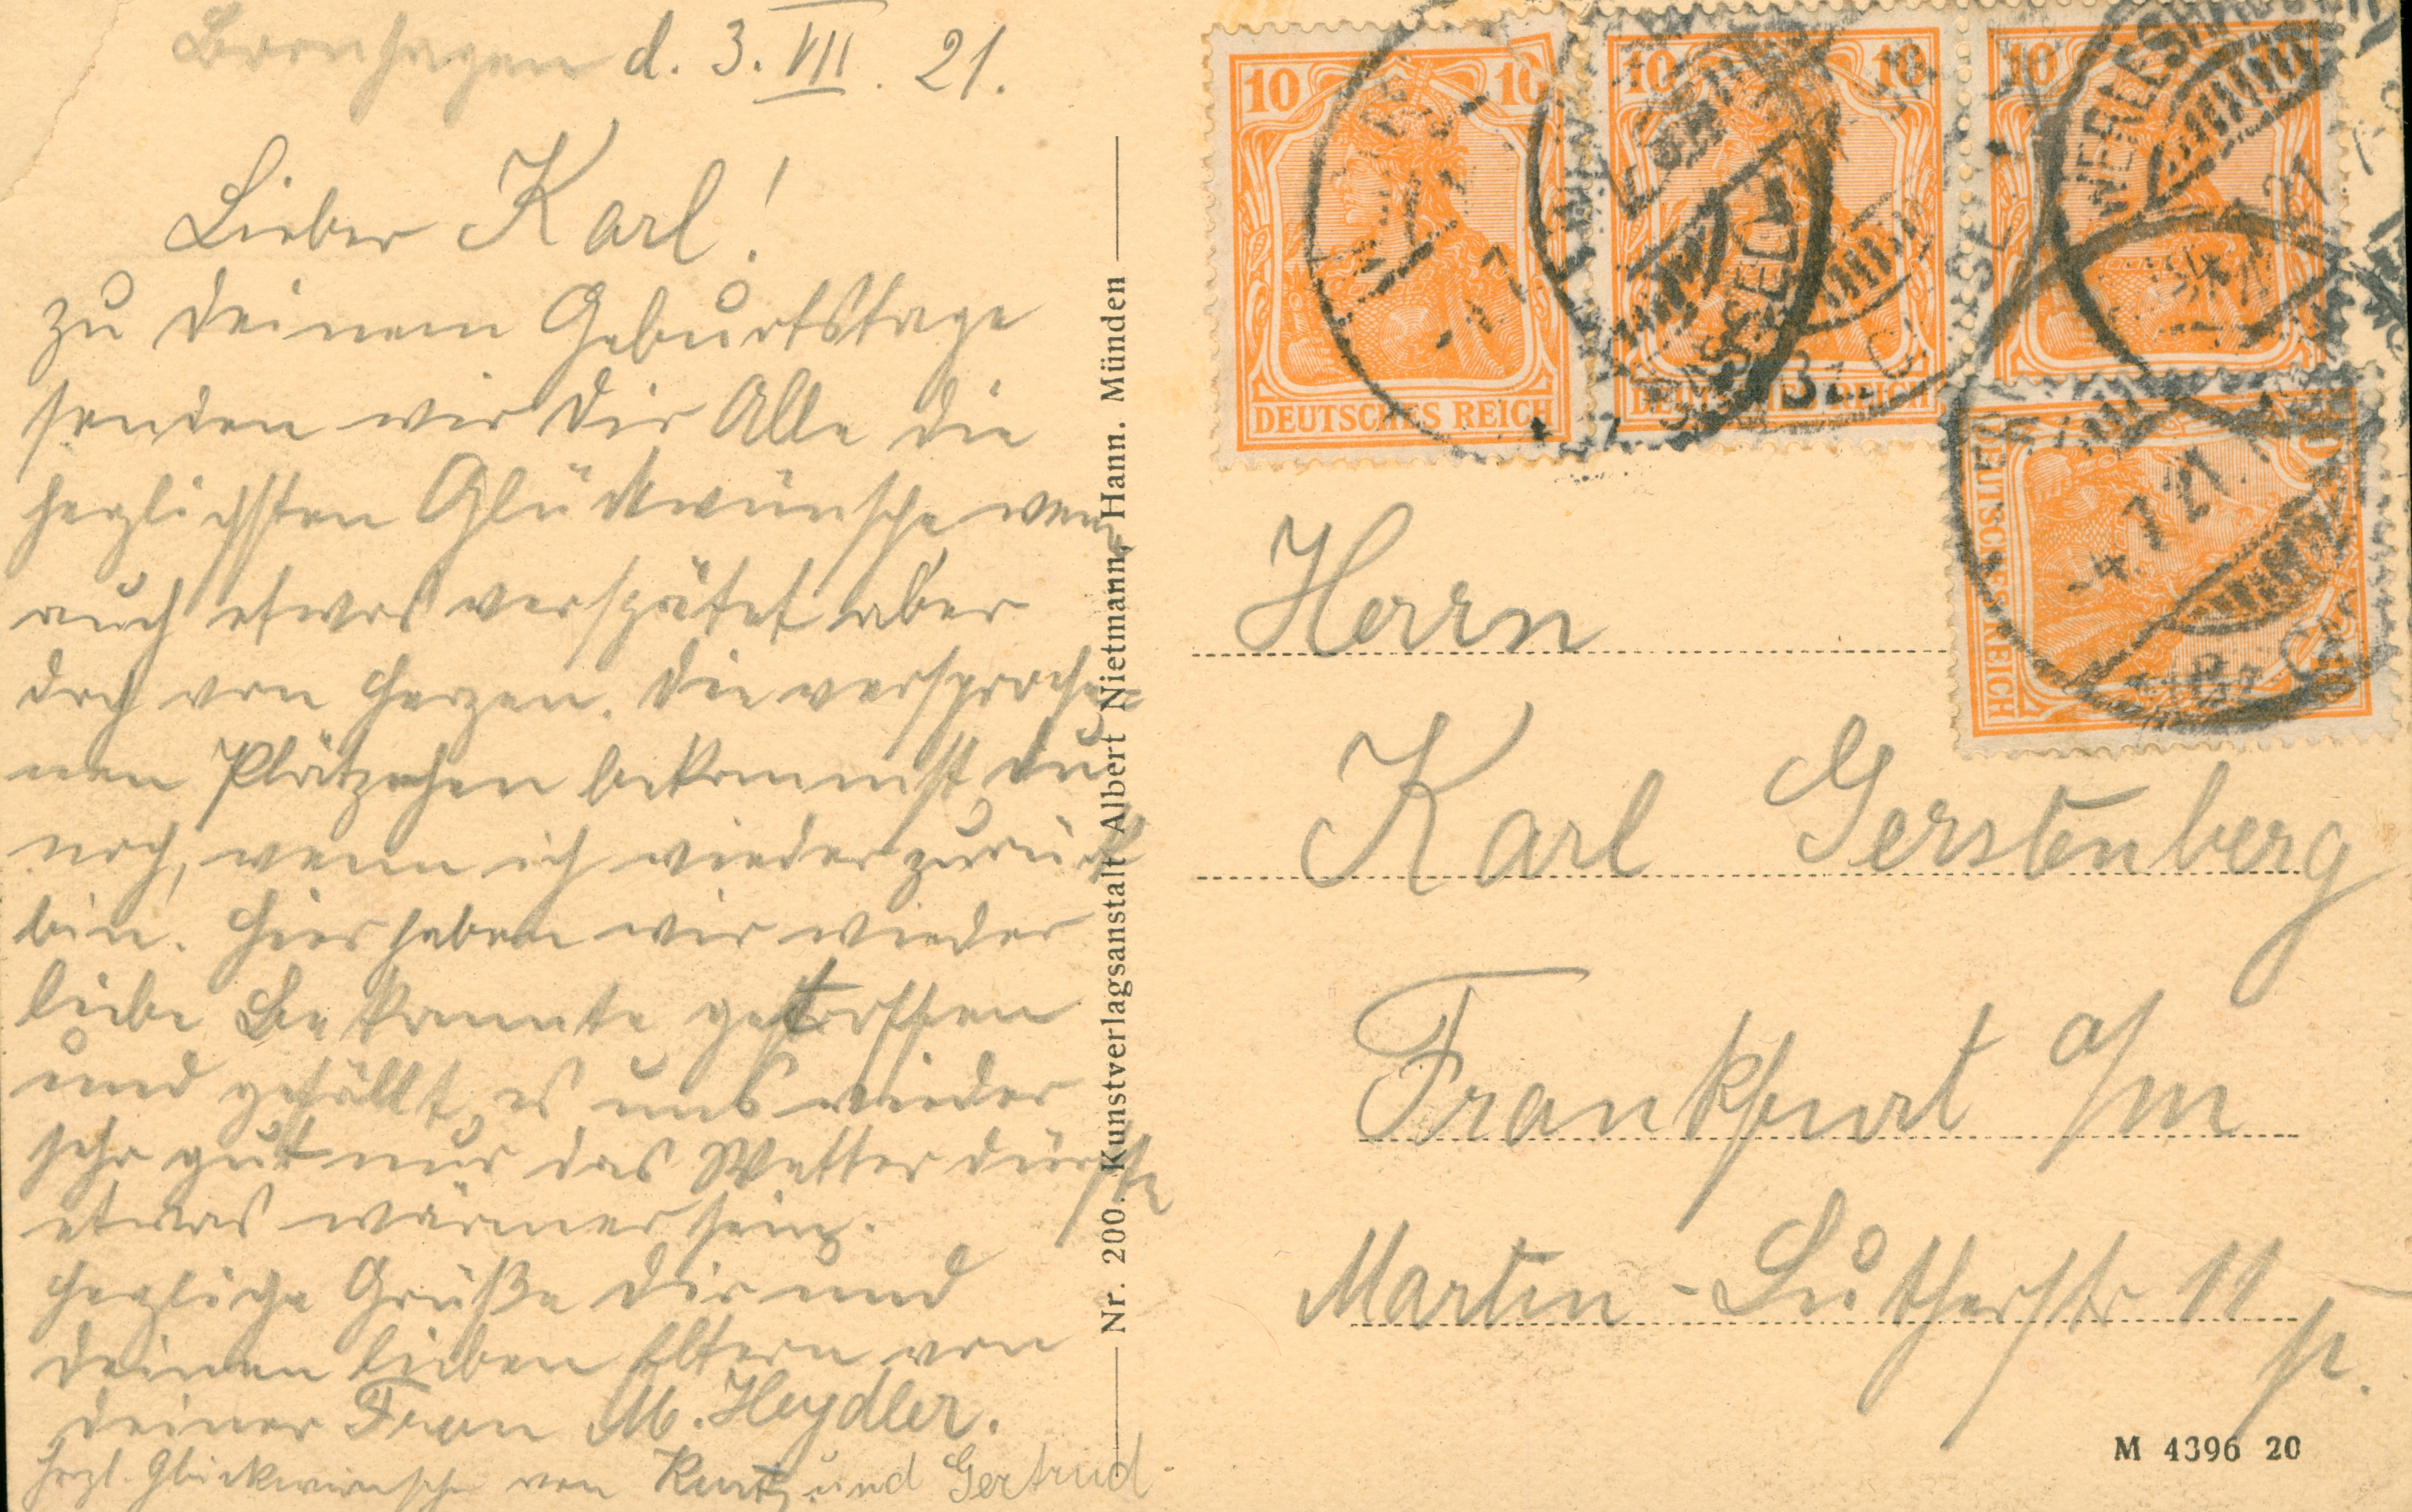 Bornhagen d. 3. VII. 21.
Lieber Karl!
zu deinem Geburtstage
senden wir dir Alle die
herzlichsten Glückwünsche wenn
auch etwas verspätet aber
doch von Herzen. Die versproche=
nen Plätzchen bekommst du
noch, wenn ich wieder zurück
bin. Hier haben wir wieder
liebe Bekannte getroffen
und gefällt es uns wieder
sehr gut nur das Wetter dürfte
etwas wärmer sein.
Herzliche Grüße dir und
deinen lieben Eltern von
deiner Frau M. Heydler.
Herzl. Glückwünsche von Kurt und Gertrud
Nr. 200. Kunstverlagsanstalt Albert Nietmann, Hann. Münden
10 10
DEUTSCHES REICH
10 10
DEUTSCHES REICH
CASSEL
10 10
WERLESH
21
DEUTSCHES REICH
10
10
-4.7.21.
Herrn
Karl Gerstenberg
Frankfurt a/m
Martin-Lutherstr 11
p.
M 4396 20